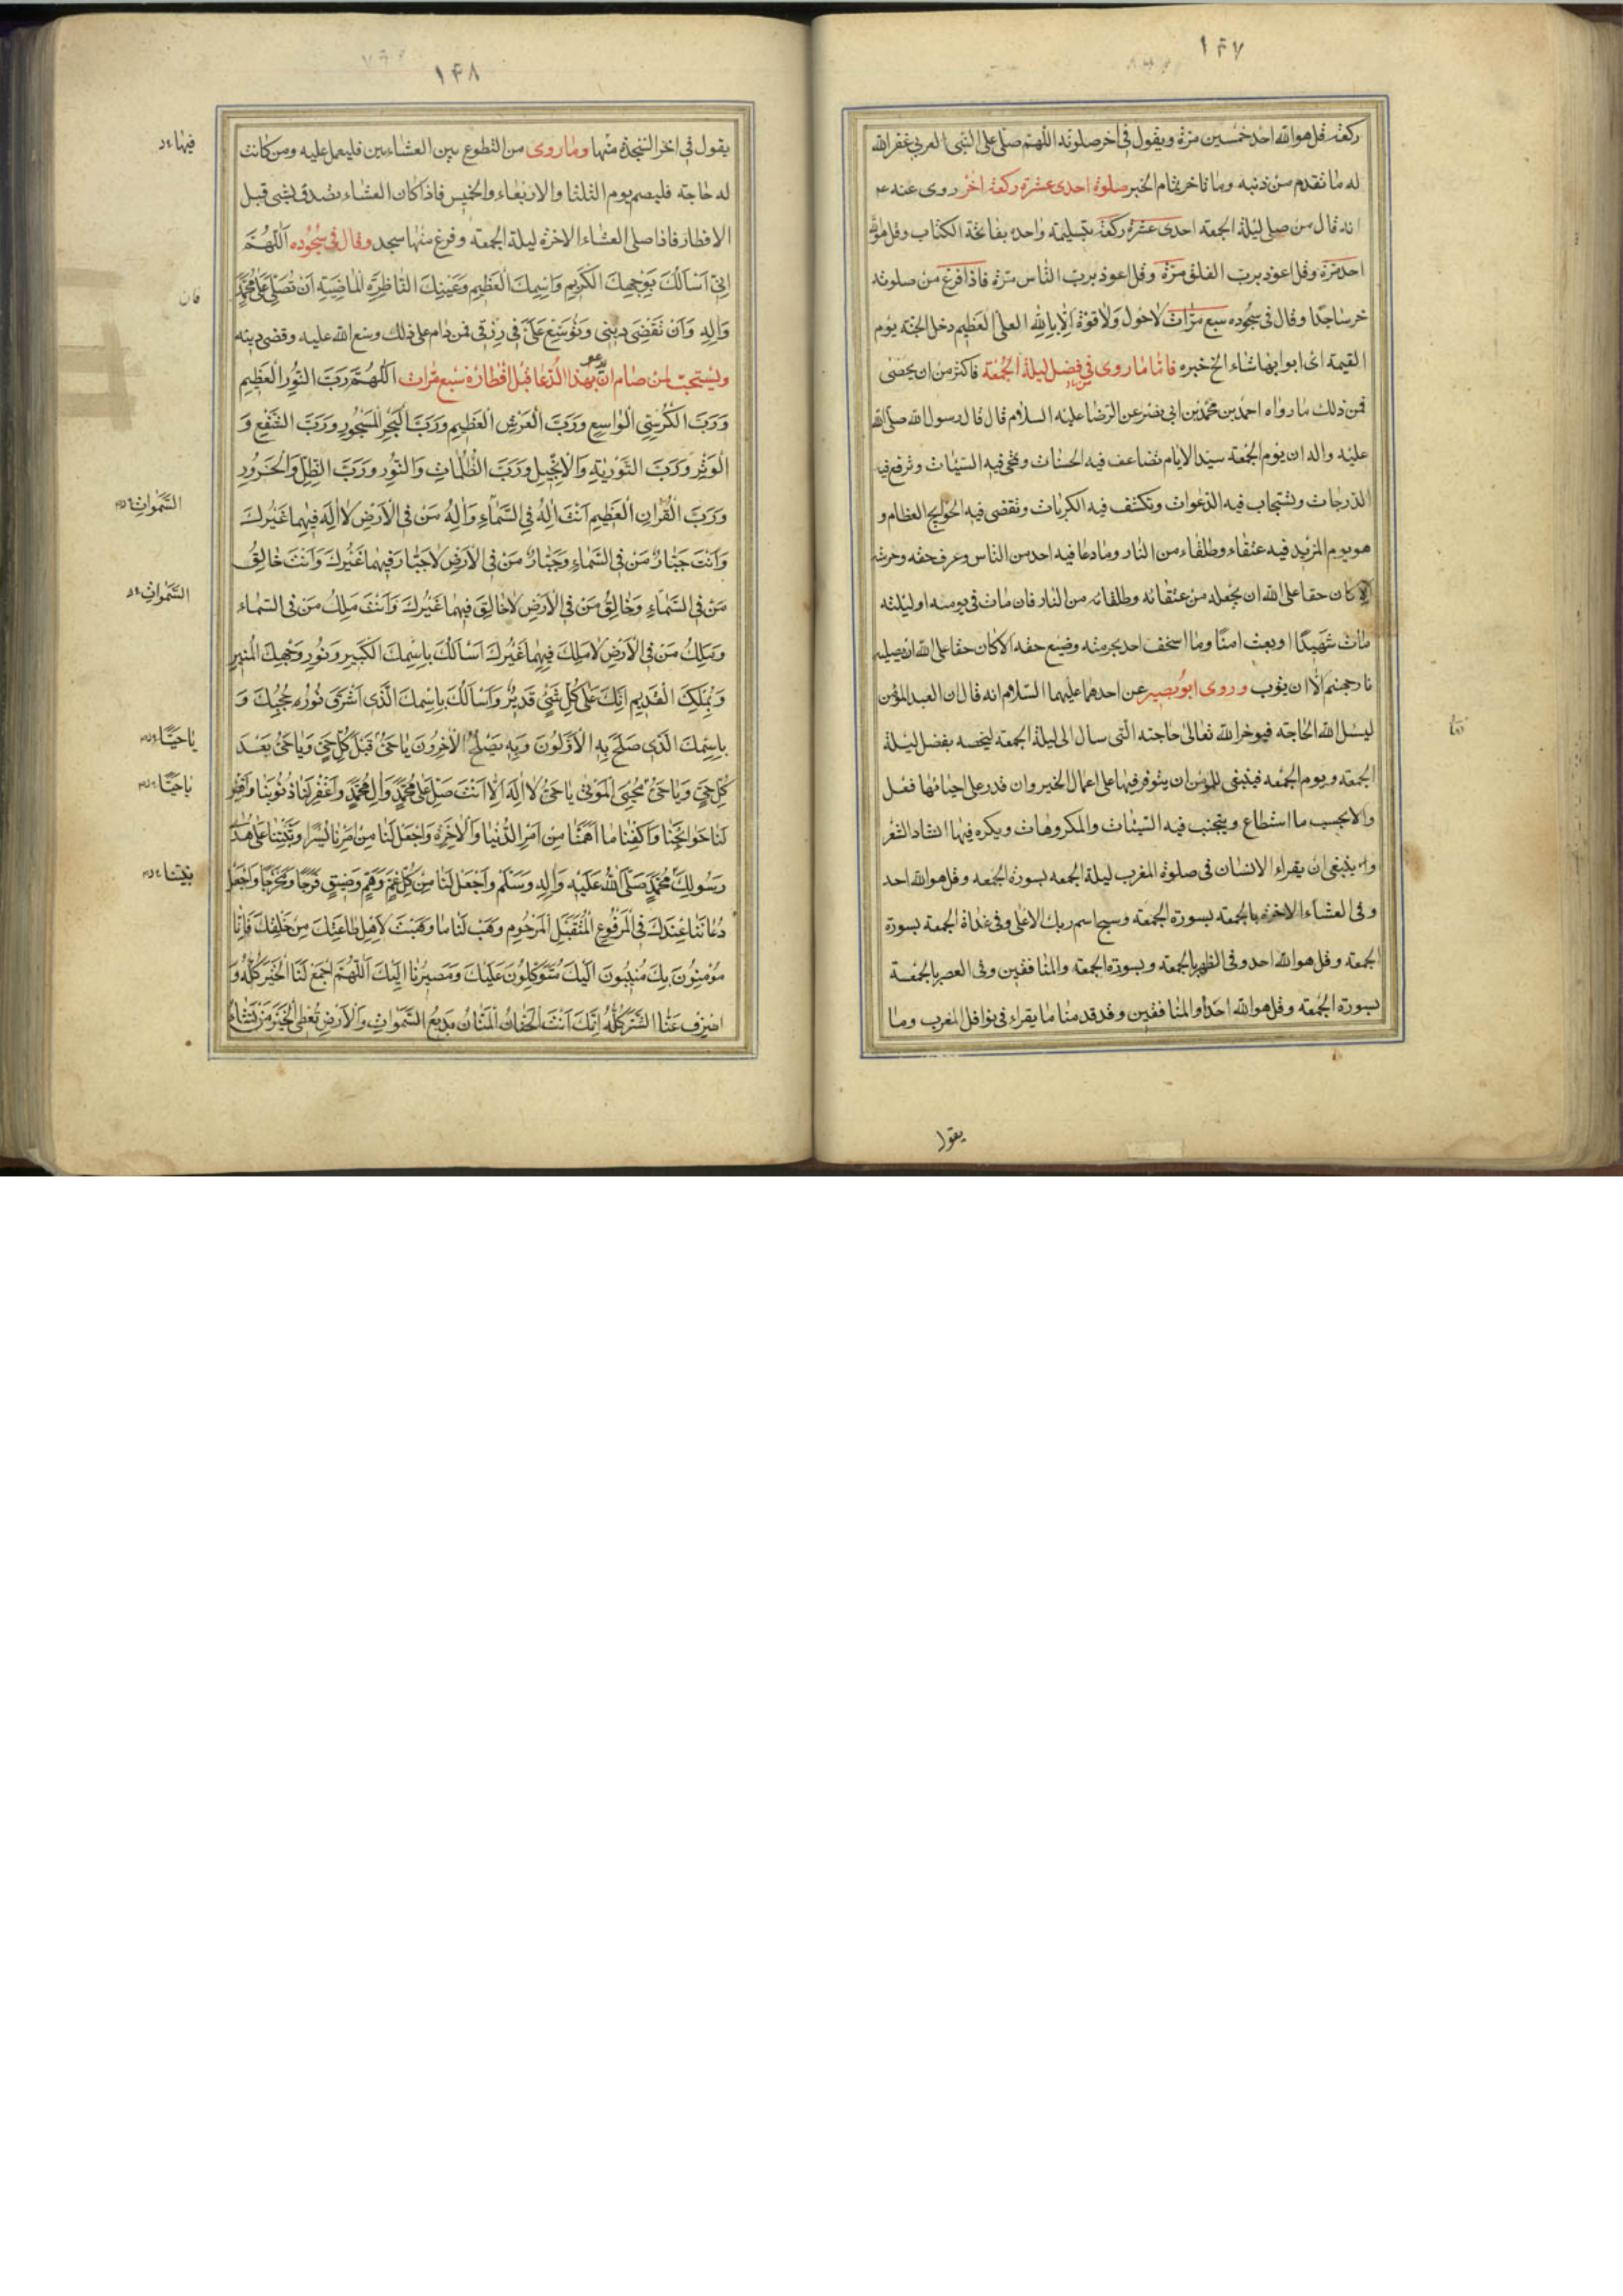 ١٤٧
ركعة قل هو الله احد خمسين مرة ويقول فى اخر صلوته اللهم صل على النبى العربى غفر الله
له ما تقدم من ذنبه وما تاخر تمام الخبر صلوة احدى عشرة ركعة اخر روى عنه ع
انه قال من صلى ليلة الجمعة احدى عشرة ركعة بتسليمة واحدة بفاتحة الكتاب وقل هو الله
احد مرة وقل اعوذ برب الفلق مرة وقل اعوذ برب الناس مرة فاذا فرغ من صلوته
خر ساجدا وقال فى سجوده سبع مرات لا حول ولا قوة الا بالله العلى العظيم دخل الجنة يوم
القيمة اى ابوابها شاء الخ خبره فاما ما روى فى فضل ليلة الجمعة فاكثر من ان يحصى
فمن ذلك ما رواه احمد بن محمد بن ابى نصر عن الرضا عليه السلام قال قال رسول الله صلى الله
عليه واله ان يوم الجمعة سيد الايام تضاعف فيه الحسنات وتمحى فيه السيئات وترفع فيه
الدرجات وتستجاب فيه الدعوات وتكشف فيه الكربات وتقضى فيه الحوايج العظام و
هو يوم المزيد فيه عتقاء وطلقاء من النار وما دعا فيه احد من الناس وعرف حقه وحرمته
الا كان حقا على الله ان يجعله من عتقائه وطلقائه من النار فان مات فى يومه او ليلته
مات شهيدا او بعث امنا وما استخف احد بحرمته وضيع حقه الا كان حقا على الله ان يصليه
نار جهنم الا ان يتوب وروى ابو بصير عن احدهما عليهما السلام انه قال ان العبد المؤمن
ليسئل الله الحاجة فيوخر الله تعالى حاجته التى سال الى ليلة الجمعة ليخصه بفضل ليلة
الجمعة ويوم الجمعة فينبغى للمؤمن ان يتوفر فيها على اعمال الخير وان قدر على احيائها فعل
والا بحسب ما استطاع ويتجنب فيه السيئات والمكروهات ويكره فيها انشاد الشعر
وينبغى ان يقراء الانسان فى صلوة المغرب ليلة الجمعة بسورة الجمعة وقل هو الله احد
وفى العشاء الاخرة بالجمعة بسورة الجمعة وسبح اسم ربك الاعلى وفى غداة الجمعة بسورة
الجمعة وقل هو الله احد وفى الظهر بالجمعة وبسورة الجمعة والمنافقين وفى العصر بالجمعة
بسورة الجمعة وقل هو الله احد او المنافقين وقد قدمنا ما يقراء فى نوافل المغرب وما
يقول
١٤٨
يقول فى اخر السجدة منها وما روى من التطوع بين العشاءين فليعمل عليه ومن كانت
له حاجة فليصم يوم الثلثا والاربعاء والخميس فاذا كان العشاء تصدق بشى قبل
الافطار فاذا صلى العشاء الاخرة ليلة الجمعة وفرغ منها سجد وقال فى سجوده اَللّهُمَّ
اِنّى اَسْاَلُكَ بِوَجْهِكَ الْكَريمِ وَاسْمِكَ الْعَظيمِ وَعَيْنِكَ النّاظِرَةِ الْماضِيَةِ اَنْ تُصَلِّىَ عَلى مُحَمَّدٍ
وَآلِهِ وَاَنْ تَقْضِىَ دَيْنى وَتُوَسِّعَ عَلَىَّ فى رِزْقى فمن دام على ذلك وسع الله عليه وقضى دينه
ويستحب لمن صام ان يدعو بهذا الدعا قبل افطاره سبع مرات اَللّهُمَّ رَبَّ النُّورِ الْعَظيمِ
وَرَبَّ الْكُرْسِىِّ الْواسِعِ وَرَبَّ الْعَرْشِ الْعَظيمِ وَرَبَّ الْبَحْرِ الْمَسْجُورِ وَرَبَّ الشَّفْعِ وَ
الْوَتْرِ وَرَبَّ التَّوْريةِ وَالْاِنْجيلِ وَرَبَّ الظُّلُماتِ وَالنُّورِ وَرَبَّ الظِّلِّ وَالْحَرُورِ
وَرَبَّ الْقُرْانِ الْعَظيمِ اَنْتَ اِلهُ فِى السَّماءِ وَاِلهُ مَنْ فِى الْاَرْضِ لا اِلهَ فيهِما غَيْرُكَ
وَاَنْتَ جَبّارُ مَنْ فِى السَّماءِ وَجَبّارُ مَنْ فِى الْاَرْضِ لا جَبّارَ فيهِما غَيْرُكَ وَاَنْتَ خالِقُ
مَنْ فِى السَّماءِ وَخالِقُ مَنْ فِى الْاَرْضِ لا خالِقَ فيهِما غَيْرُكَ وَاَنْتَ مَلِكُ مَنْ فِى السَّماءِ
وَمَلِكُ مَنْ فِى الْاَرْضِ لا مَلِكَ فيهِما غَيْرُكَ اَسْاَلُكَ بِاسْمِكَ الْكَبيرِ وَنُورِ وَجْهِكَ الْمُنيرِ
وَبِمُلْكِكَ الْقَديمِ اِنَّكَ عَلى كُلِّ شَىْءٍ قَديرٌ وَاَسْاَلُكَ بِاسْمِكَ الَّذى اَشْرَقَ نُورُهُ حُجُبَكَ وَ
بِاسْمِكَ الَّذى صَلَحَ بِهِ الْاَوَّلُونَ وَبِهِ يَصْلَحُ الْاخِرُونَ يا حَىُّ قَبْلَ كُلِّ حَىٍّ وَيا حَىُّ بَعْدَ
كُلِّ حَىٍّ وَيا حَىُّ مُحْيِىَ الْمَوْتى يا حَىُّ لا اِلهَ اِلّا اَنْتَ صَلِّ عَلى مُحَمَّدٍ وَآلِ مُحَمَّدٍ وَاغْفِرْ لَنا ذُنُوبَنا وَاقْضِ
لَنا حَوائِجَنا وَاكْفِنا ما اَهَمَّنا مِنْ اَمْرِ الدُّنْيا وَالْاخِرَةِ وَاجْعَلْ لَنا مِنْ اَمْرِنا يُسْرًا وَثَبِّتْنا عَلى هُدى
رَسُولِكَ مُحَمَّدٍ صَلَّى اللهُ عَلَيْهِ وَآلِهِ وَسَلَّم وَاجْعَلْ لَنا مِنْ كُلِّ غَمٍّ وَهَمٍّ وَضيقٍ فَرَجًا وَمَخْرَجًا وَاجْعَلْ
دُعائَنا عِنْدَكَ فِى الْمَرْفُوعِ الْمُتَقَبَّلِ الْمَرْحُومِ وَهَبْ لَنا ما وَهَبْتَ لِاَهْلِ طاعَتِكَ مِنْ خَلْقِكَ فَاِنّا
مُؤْمِنُونَ بِكَ مُنيبُونَ اِلَيْكَ مُتَوَكِّلُونَ عَلَيْكَ وَمَصيرُنا اِلَيْكَ اَللّهُمَّ اجْمَعْ لَنَا الْخَيْرَ كُلَّهُ وَ
اصْرِفْ عَنَّا الشَّرَّ كُلَّهُ اِنَّكَ اَنْتَ الْحَنّانُ الْمَنّانُ بَديعُ السَّمواتِ وَالْاَرْضِ تُعْطِى الْخَيْرَ مَنْ تَشاءُ
فيها
فان
السَّمواتِ
السَّمواتِ
يا حَيًّا
يا حَيًّا